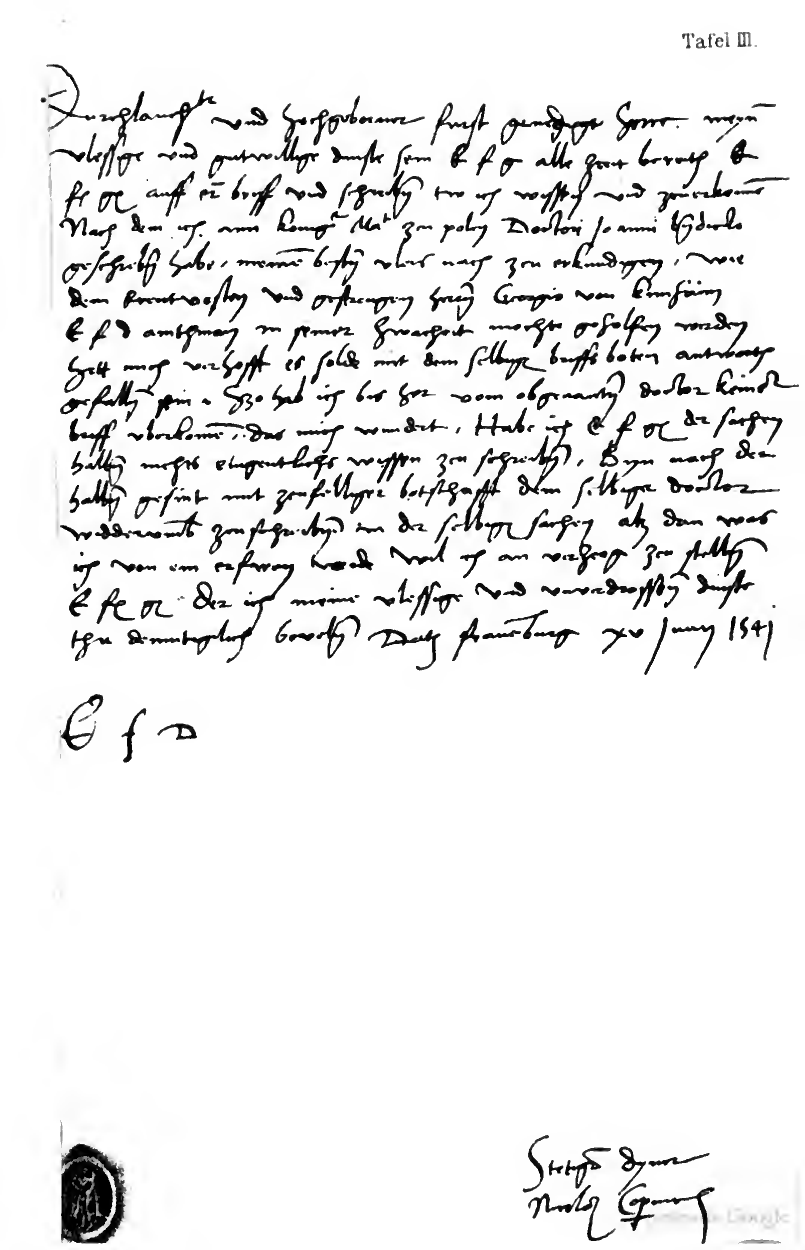 Tafel III.
Durchlauchtr und hochgeborner furst genedigr herre. meyn
vlessige und gutwillige dinste sein E f g alle zeeit bereith E
fr gr auff er briff und schreiben thu ich wissen und zcuerkennen
Nach dem ich ann konigr Matt zcu polen Doctori Joanni Bendicto
geschriben habe, meinen besten vleis nach zcu erkundigen, wie
dem Erentvesten und gestrengen herren Georgio von Kunheim
E f d amthman in seiner swacheit mochte geholfen werden
hett mich verhofft es solde mit dem selbigen briffs boten antworth
gefallen sein. Szo hab ich bis her vom obgenanten doctor keinen
briff uberkomen, das mich wundert, Habe ich E f gr der sachen
halben nichts eigentlichs wissen zcu schreiben, Byn nach der
halben gesint mit zcufelliger botschafft dem selbigen doctor
widderumb zcuschreiben in der selbigen sachen alz dan was
ich von em erfaren werde wil ich an verzcog zcu stellen
E fr gr Der ich meine vlessige und unverdrossen dinste
thu demutiglich bevelen Datum Frauenburg xv Junii 1541
E f D
Stetigr dyner
Nicolaus Copernicus
Google